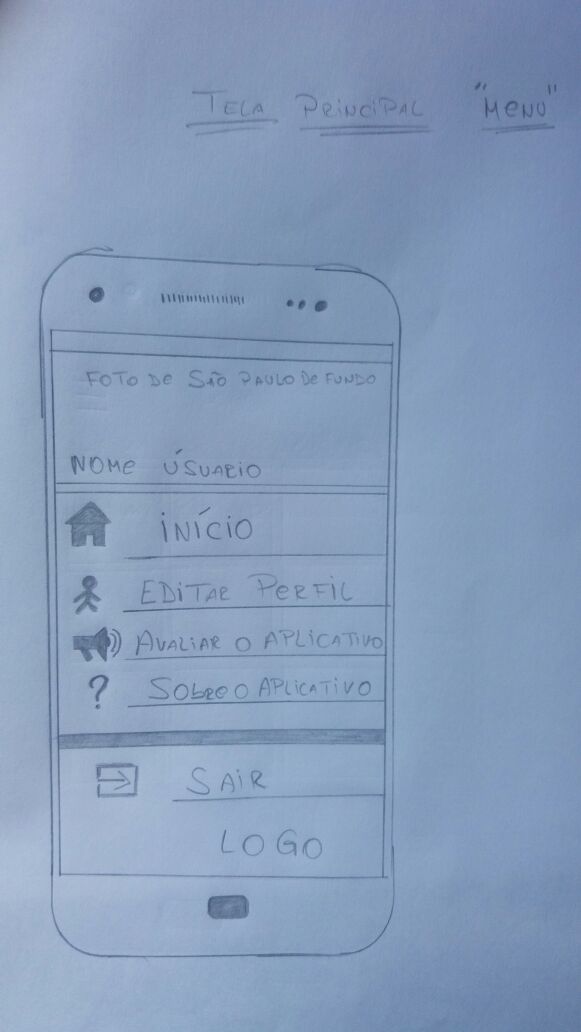 TELA PRINCIPAL "MENU"
FOTO DE SÃO PAULO DE FUNDO
NOME ÚSUARIO
INÍCIO
EDITAR PERFIL
AVALIAR O APLICATIVO
?
SOBRE O APLICATIVO
SAIR
LOGO